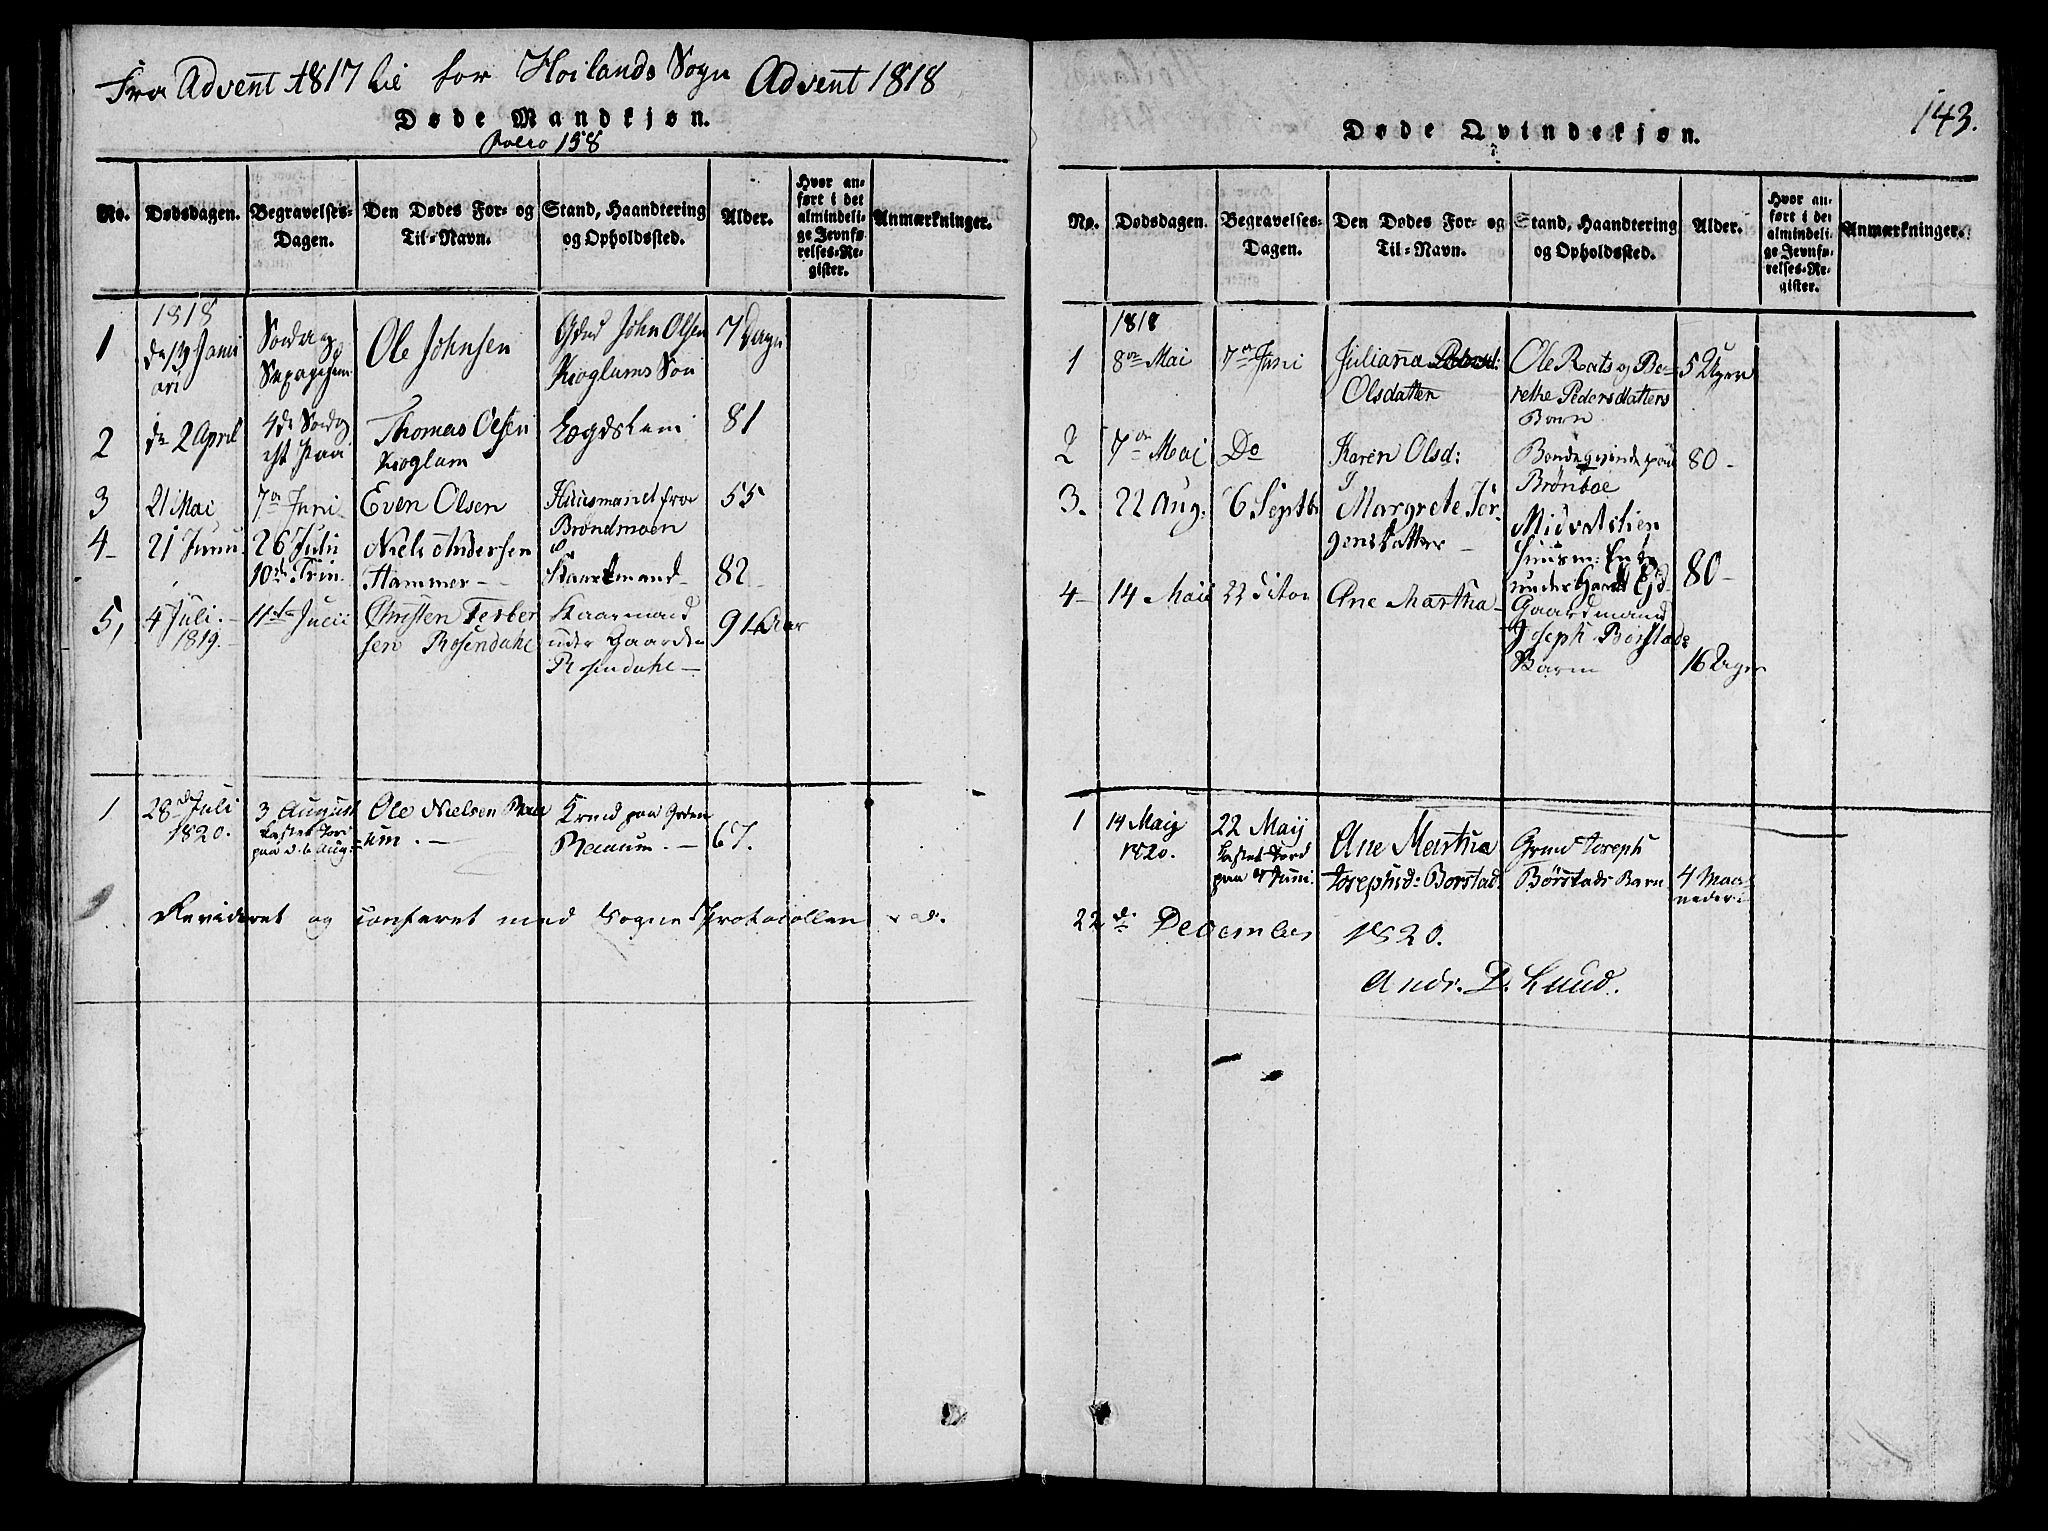 Fra Advent 1817 til for Hoilands Sogn Advent 1818
Døde Mandkjøn.
Folio 158
No.
Dødsdagen.
Begravelses-
Dagen.
Den Dødes For- og
Til-Navn.
Stand, Haandtering
og Opholdssted.
Alder.
Hvor an-
ført i det
almindeli-
ge Jevnfø-
relses-Re-
gister.
Anmærkninger.
1818
1
Janu
ari
Sondag
Ole Johnsen
John Olsen
Kioglums Søn
7 Dage
2
de 2 April
4de Sondag
Thomas Olsen
Kioglum
Lægdslem
81
3
21 Mai
7de Juni
Even Olsen
Huusmand fra
Brøndmoen
55
4-
21 Juni
26 Julii
10de Trin.
Niels Andersen
Hammer-
82
5,
4 Juli.-
1819.-
11te Julii
Christen Terber
sen Rosendahl
Kaarmand
under Gaarden
Rosendahl-
91 Aar
1
28de Juli
1820.
3 August
Kastet Jord
paa d. 6 Aug:
Ole Nielsen
um.-
paa Grden
Raaum.-
67.
Revideret og confereret med Sogne Protocollen
Døde Qvindekjøn.
143.
No.
Dødsdagen.
Begravelses-
Dagen.
Den Dødes For- og
Til-Navn.
Stand, Haandtering
og Opholdssted.
Alder.
Hvor an-
ført i det
almindeli-
ge Jevnfø-
relses-Re-
gister.
Anmærkninger.
1818
1
8de Mai
7de Juni
Juliana
Olsdatten
Ole Rats og Be-
rethe Pedersdatters
Barn
5 Uger
2
7de Mai
Do
Karen Olsd:
Bondeqvinde paa
Brønboe
80-
3.
22 Aug.
6 Septb
Margrete Jør-
gensdatter-
Midvatstien
Huusm:
under
80-
4-
14 Maii
22 ditto
Ane Martha-
Gaardmand
Joseph Børstads
Barn
16 Uger
1
14 Maij
1820.
22 Maij
Kastet Jord
paa Juni.
Ane Martha
Josephsd: Børstad.
Grmd Joseph
Børstads Barn
4 Maa-
neder
22de December 1820.
Andr. D. Lund.